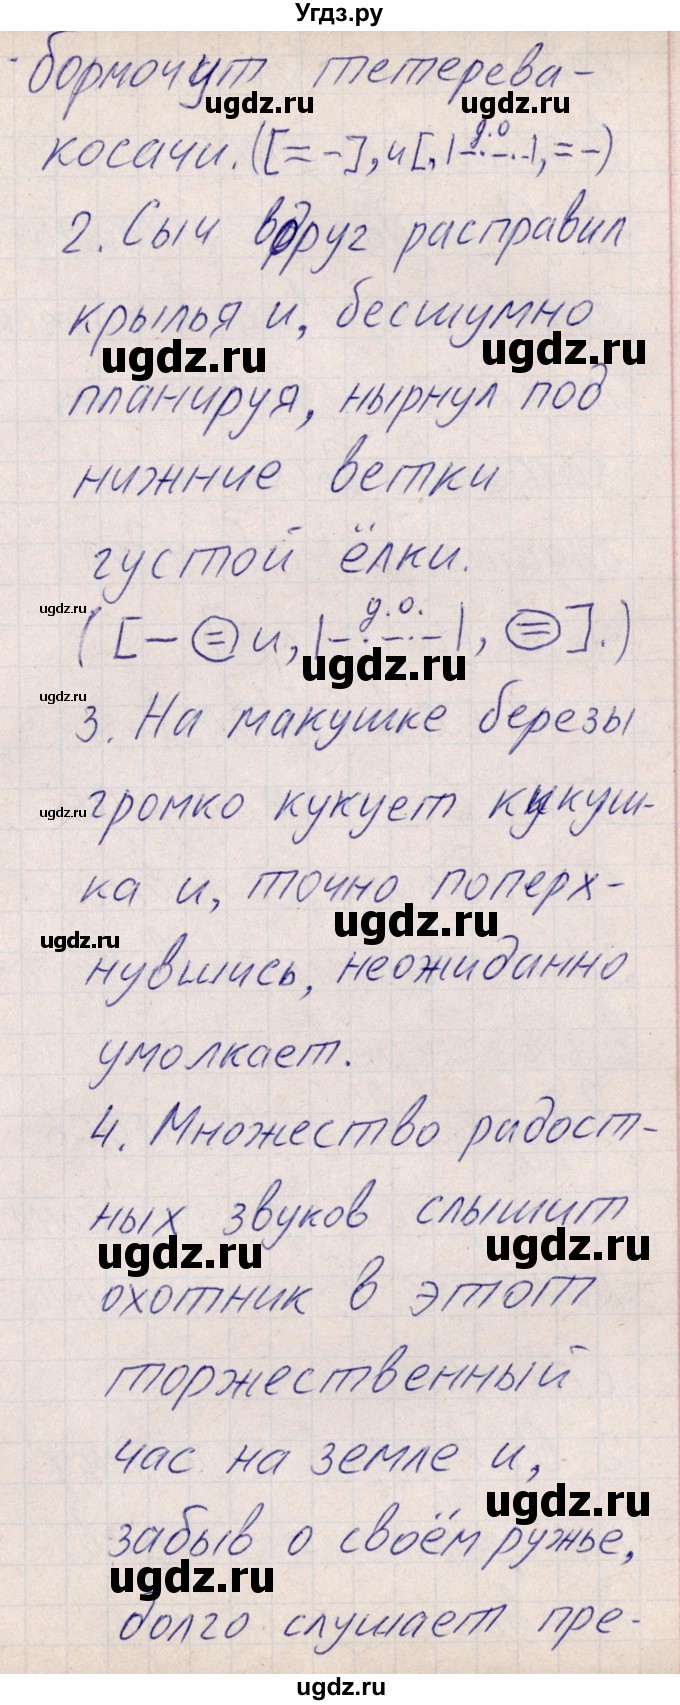 Угдз.ру
бормочут тетерева-
ugdz.ru ugdz.ru
косачи. ([= -], и [, |-·-·-·|, = -)
д.о
2. Сыч вдруг расправил
крылья и, бесшумно
ugdz.ru ugdz.ru
планируя, нырнул под
нижние ветки
густой ёлки.
ugdz.ru д.о.
([- = и, |-·-·-|, = ].)
ugdz.ru
3. На макушке березы
ugdz.ru
громко кукует кукуш-
ка и, точно поперх-
ugdz.ru ugdz.ru
нувшись, неожиданно
умолкает.
4. Множество радост-
ных звуков слышит
ugdz.ru ugdz.ru
охотник в этот
торжественный
час на земле и,
ugdz.ru
забыв о своём ружье,
ugdz.ru
долго слушает пре-
ugdz.ru